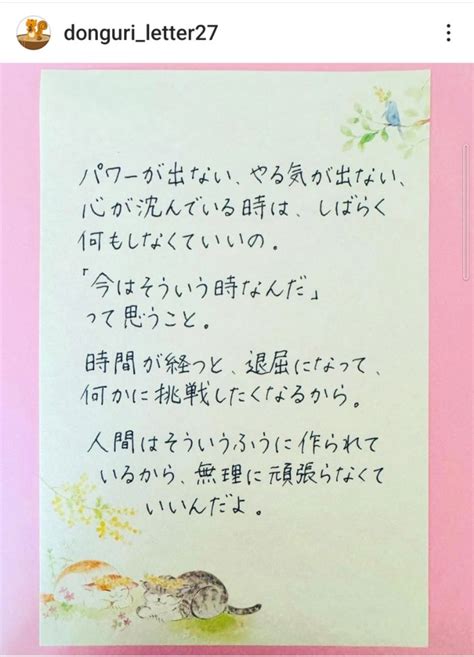 donguri_letter27
パワーが出ない、やる気が出ない、
心が沈んでいる時は、しばらく
何もしなくていいの。
「今はそういう時なんだ」
って思うこと。
時間が経つと、退屈になって、
何かに挑戦したくなるから。
人間はそういうふうに作られて
いるから、無理に頑張らなくて
いいんだよ。